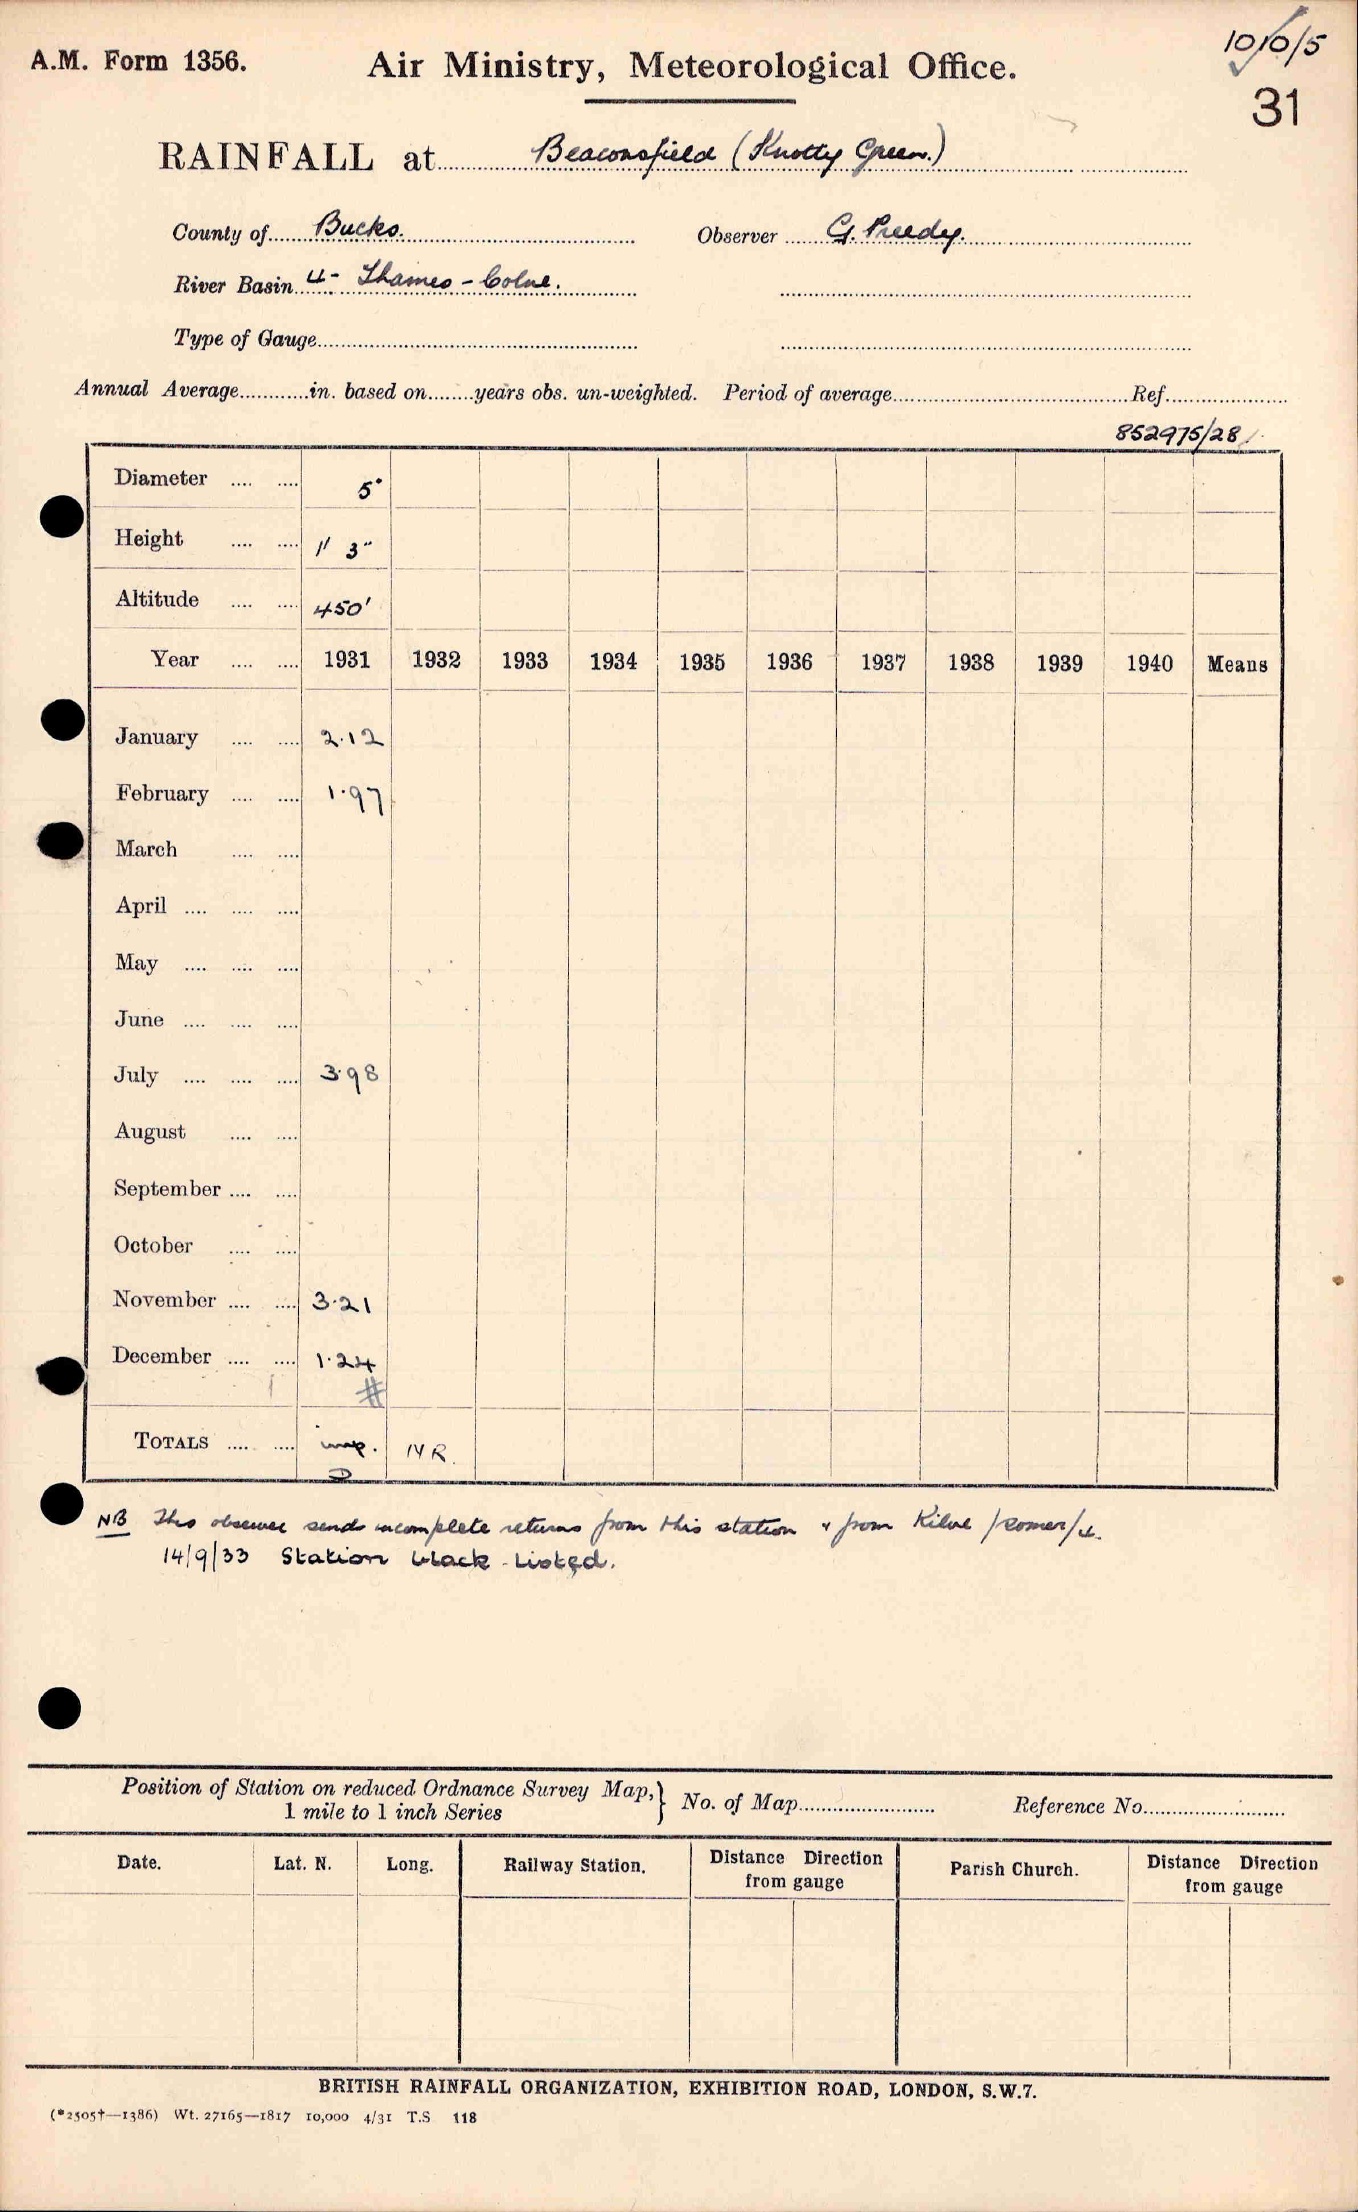 A.M. Form 1356.
Air Ministry, Meteorological Office.
10/10/5
31
RAINFALL at Beaconsfield (Knotty Green.)
County of Bucks. Observer G. Preedy.
River Basin 4- Thames - Colne.
Type of Gauge
Annual Average in. based on years obs. un-weighted. Period of average Ref.
852975/28
Diameter 5"
Height 1' 3"
Altitude 450'
Year 1931 1932 1933 1934 1935 1936 1937 1938 1939 1940 Means
January 2.12
February 1.97
March
April
May
June
July 3.98
August
September
October
November 3.21
December 1.24
#
TOTALS imp. NR.
D
NB This observer sends incomplete returns from this station & from Kilve /Somer/4.
14/9/33 Station black-Listed.
Position of Station on reduced Ordnance Survey Map, } No. of Map Reference No.
1 mile to 1 inch Series
Date. Lat. N. Long. Railway Station. Distance Direction from gauge Parish Church. Distance Direction from gauge
BRITISH RAINFALL ORGANIZATION, EXHIBITION ROAD, LONDON, S.W.7.
(*2505†—1386) Wt. 27165—1817 10,000 4/31 T.S 118